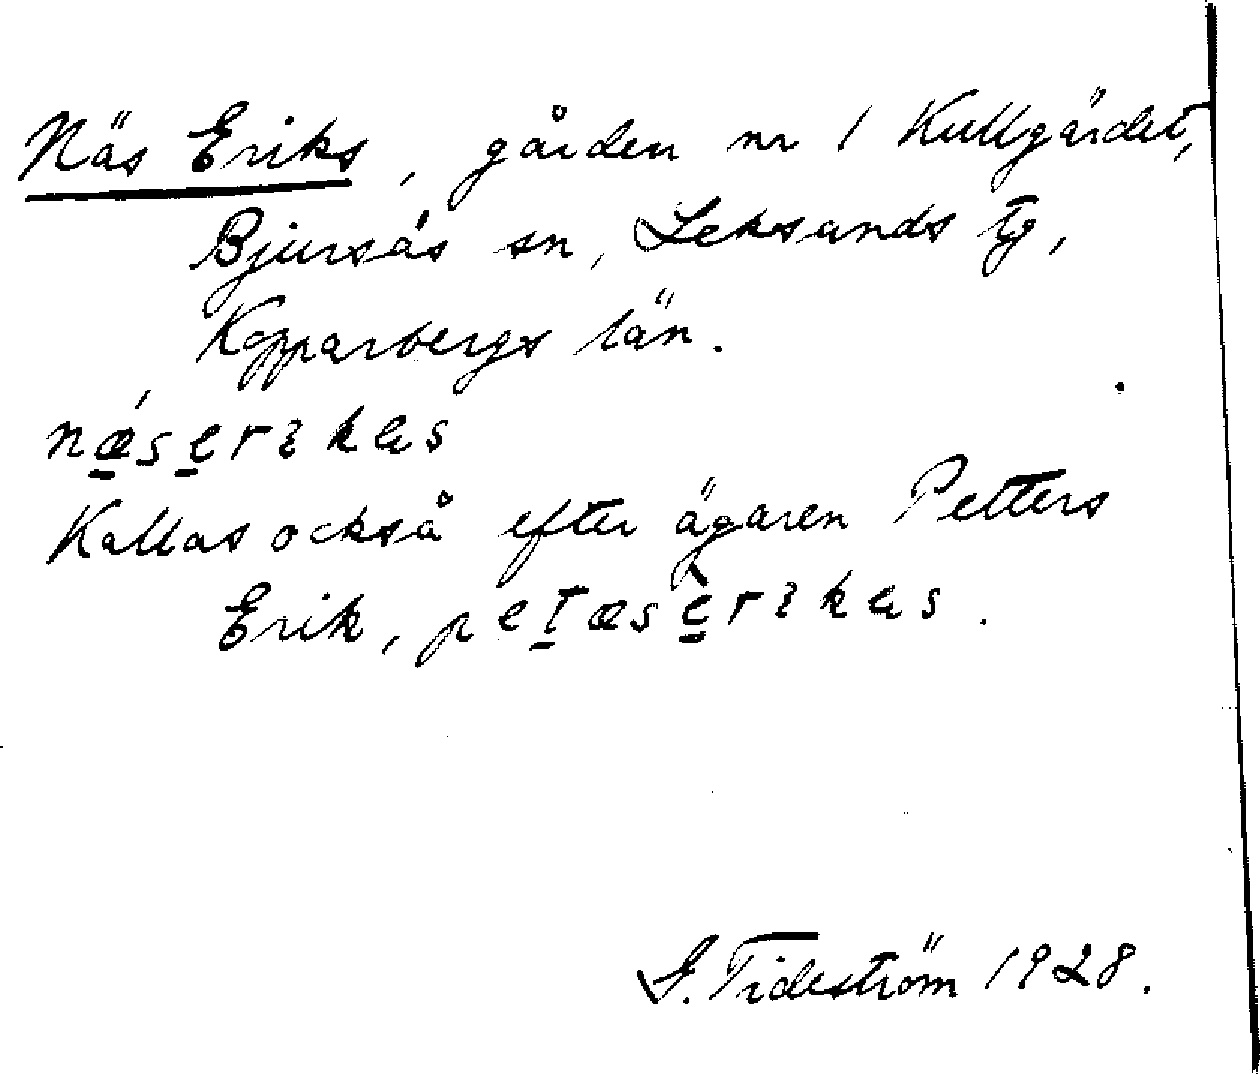 Näs Eriks, gården nr 1 Kullgärdet,
Bjursås sn, Leksands tg,
Kopparbergs län.
nǽserıkæs
Kallas också efter ägaren Petters
Erik, petæsèrıkæs.
G. Tideström 1928.